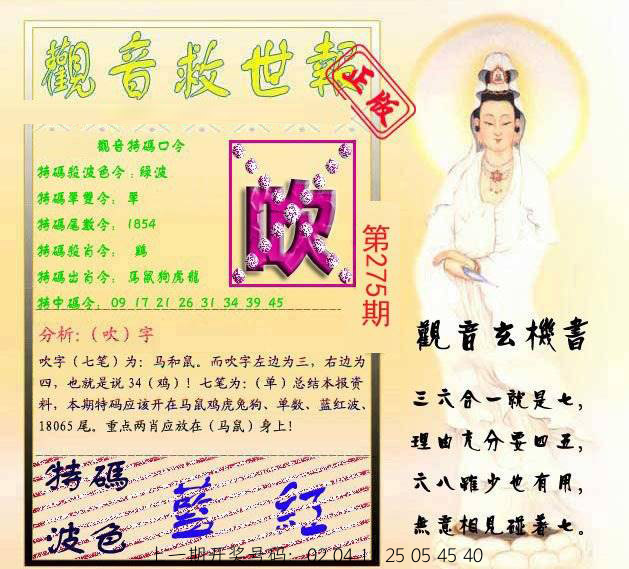 觀音救世報
正版
觀音特碼口令
特碼殺波色令:绿波
特碼單雙令: 單
特碼尾數令: 1854
特碼殺肖令: 鷄
特碼出肖令: 馬鼠狗虎龍
特中碼令: 09 17 21 26 31 34 39 45
吹
第275期
分析:(吹)字
吹字(七笔)为:马和鼠。而吹字左边为三,右边为
四,也就是说 34(鸡)!七笔为:(单)总结本报资
料,本期特码应该开在马鼠鸡虎兔狗、单数、蓝红波、
18065 尾。重点两肖应放在(马鼠)身上!
特碼
波色
藍 紅
觀音玄機書
三六合一就是七,
理由充分要四五,
六八雖少也有用,
無意相見碰著七。
上一期开奖号码: 02 04 25 05 45 40